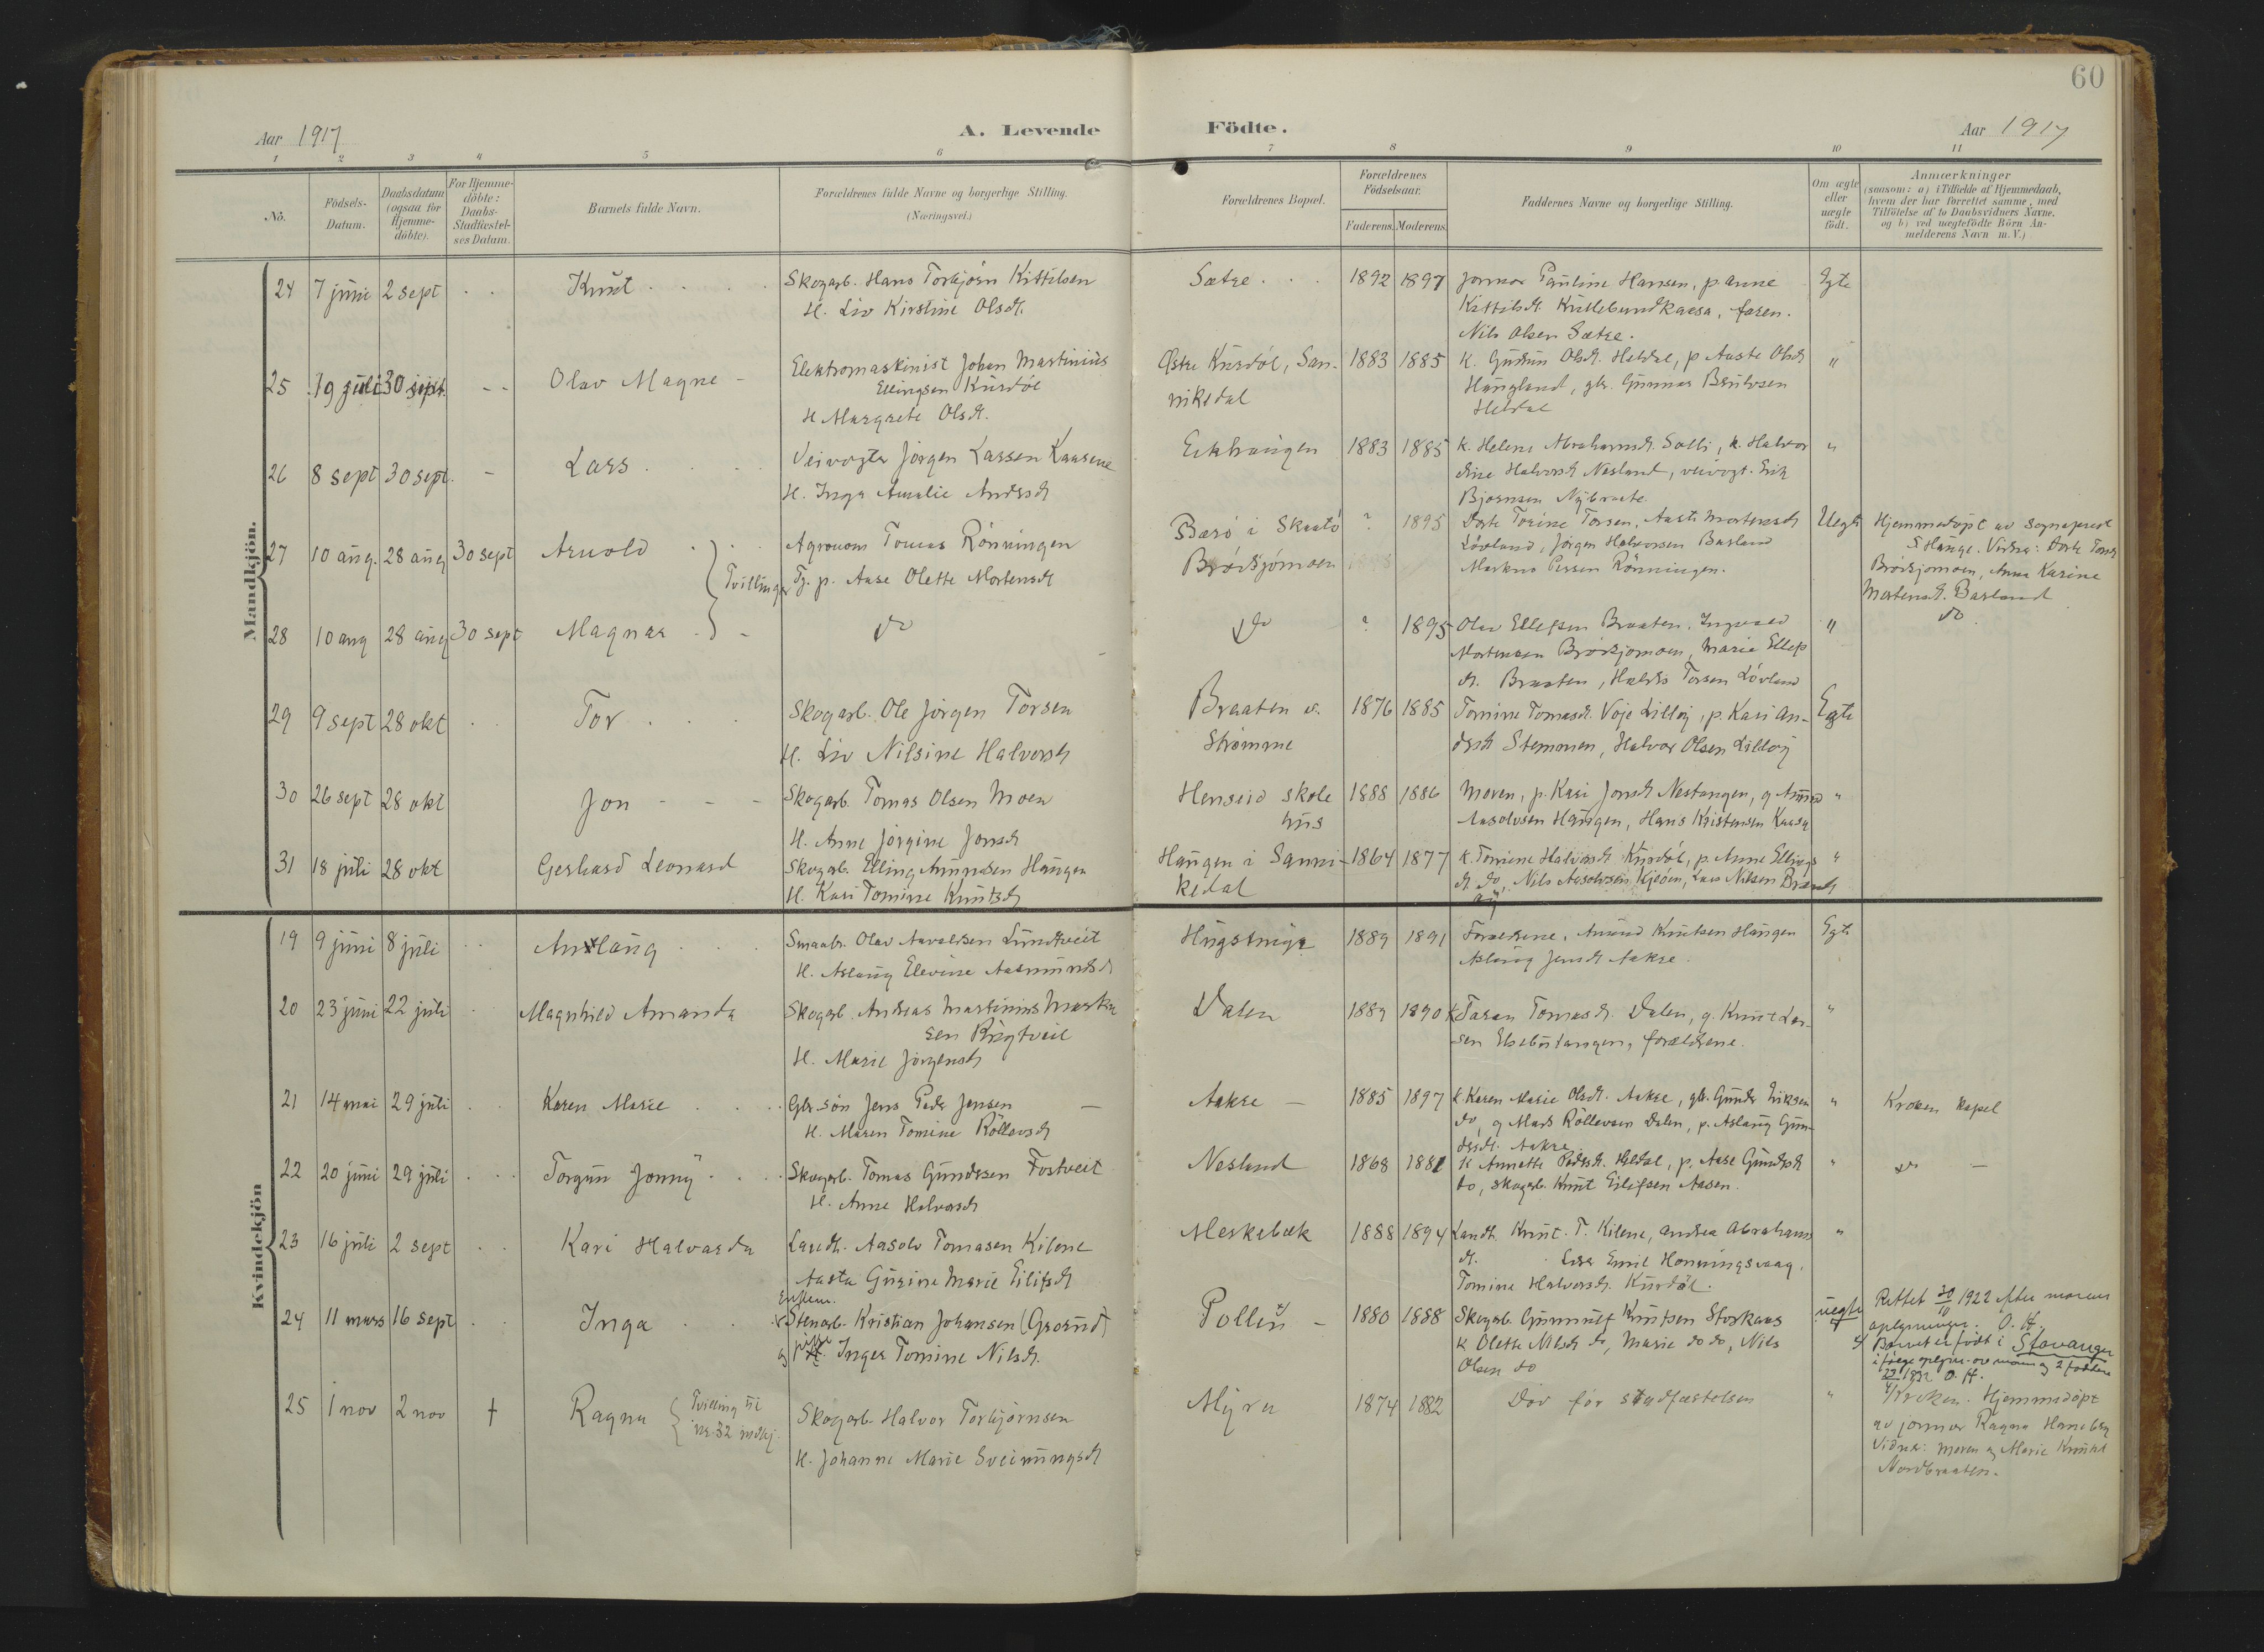 60
Aar 1917
A. Levende
Födte.
Aar 1917
1 2 3 4 5 6 7 8 9 10 11
No.
Födsels-
Datum.
Daabsdatum
(ogsaa for
Hjemme-
döbte).
For Hjemme-
döbte:
Daabs-
Stadfæstel-
ses Datum.
Barnets fulde Navn.
Forældrenes fulde Navne og borgerlige Stilling.
(Næringsvei.)
Forældrenes Bopæl.
Forældrenes
Födselsaar.
Faderens. Moderens.
Faddernes Navne og borgerlige Stilling.
Om ægte
eller
uægte
födt.
Anmærkninger
(saasom: a) i Tilfælde af Hjemmedaab,
hvem der har forrettet samme, med
Tilföielse af to Daabsvidners Navne.
og b) ved uægtefödte Börn An-
melderens Navn m. V.)
Mandkjön.
24 7 juni 2 sept Knut
Skogarb. Hans Torbjørn Kittilsen
H. Liv Kirstine Olsdt.
Sætre 1892 1897
Jormor Pauline Hansen, p. Anne
Kittilsdt. , faren.
Nils Olsen Sætre.
Egte
25 19 juli 30 sept. - - Olav Magne -
Elektromaskinist Johan Martinius
Ellingsen Kurdöl
H Margrete Olsdt.
Østre Kurdöl, San-
nikedal
1883 1885
K. Gudrun Olsdt. Heldal, p Aaste Olsdt
Haugland, gbr. Gunnar Brulvsen
Heldal
"
26 8 sept 30 sept. - Lars
Veivogter Jørgen Larsen Kaasene
H. Inga Amalie Andersdt
Eikhaugen 1883 1885
K. Helene Abrahamsdt. Solli, k. Halvor
dine Halvorsdt Nesland, veivogt. Erik
Bjørnsen Nybraate.
"
27 10 aug. 28 aug 30 sept Arnold
Tvillinger
Agronom Tomas Rönningen
Tj. p. Aase Olette Mortensdt
Barö i Skaatö
Brödsjömoen
? 1895
Dorte Torine Torsen, Aaste Mortensdt
Lövland, Jørgen Halvorsen Barland
Markus Rönningen.
Uegte
Hjemmedöpt av sogneprest
S Hauge. Vidner: Dorte Torsdt
Brödsjömoen, Anna Karine
Mortensdt. Barland
28 10 aug 28 aug 30 sept Magnar -
do
do ? 1895
Olav Ellefsen Braaten, Ingvald
Mortensen Brödsjömoen, Marie Ellefs
dt. Braaten, Torsen Lövland
"
do
29 9 sept 28 okt Tor
Skogarb. Ole Jörgen Torsen
H. Liv Nilsine Halvorsdt
Braaten v.
Strömme
1876 1885
Tomine Tomasdt. Voje Lilloj, p. Kari An-
dersdt Stemmen, Halvor Olsen Lilloj
Egte
30 26 sept 28 okt Jon - - -
Skogarb. Tomas Olsen Moen
H. Anne Jörgine Jonsdt
Henseid skole
hus
1888 1886
Moren, p. Kari Jonsdt Nestangen, g Amund
Aasolvsen Haugen, Hans Kristensen Kaasa
"
31 18 juli 28 okt Gerhard Leonard
Skogarb. Elling Amundsen Haugen
H. Kari Tomine Knutsdt
Haugen i Sanni-
kedal
1864 1877
K. Tomine Halvorsdt Kurdöl, p. Anne Ellings
dt do, Nils Aasolvsen Kjeöen, Lars Nilsen
"
Kvindekjön
19 9 juni 8 juli Anlaug
Smaabr. Olav Aavaldsen Lundtveit
H. Aslaug Elevine Aasmundsdt
1889 1891
Forældrene, Amund Knutsen Haugen
Aslaug Jensdt Aakre.
Egte
20 23 juni 22 juli Magnhild Amanda
Skogarb. Andreas Martinius
sen
H. Marie Jörgensdt
Dalen 1889 1890
K Taran Tomasdt. Dalen, g. Knut Lar-
sen , forældrene.
"
21 14 mai 29 juli Karen Marie
Gbr. sön Jens Peder Jensen
H. Maren Tomine Röllevsdt
Aakre - 1885 1897
K. Karen Marie Olsdt. Aakre, gb. Gunder Eriksen
do, g Mads Röllevsen Dalen, p. Aslaug Gun-
dersdt. Aakre
"
Kroken kapel
22 20 juni 29 juli Torgun Jonny
Skogarb. Tomas Gundersen Tostveit
H. Anne Halvorsdt
Nesland 1868 1881
K Annette Pedersdt. Heldal, p. Aase Gundersdt
do, skogarb. Knut Eilifsen Aasen.
"
do -
23 16 juli 2 sept Kari Halvarda
Landh. Aasolv Tomasen Kilene
Aasta Gurine Marie Eilifsdt
Merkebæk 1888 1894
Landh. Knut T. Kilene, Andrea Abrahams
dt. Emil Honningsvaag.
Tomine Halvorsdt. Kurdöl.
"
24 11 mars 16 sept Inga
Enkem.
Stenarb. Kristian Johansen (Grorud)
og pike Inger Tomine Nilsdt.
Pollen - 1880 1888
Skogarb. Gunnulf Knutsen Storkaas
K Olette Nilsdt do, Marie do do, Nils
Olsen do
uegte
Rettet 30/10 1922 efter morens
oplysninger. O. H.
Barnet er födt i Stavanger
ifölge oplysn. av moren og 2 faddere
1922 O. H.
25 1 nov 2 nov † Ragna
Tvilling til
nr. 32 mdkj.
Skogarb. Halvor Torbjörnsen
H. Johanne Marie Sveinungsdt
Myra 1874 1882
Död för stadfæstelsen
"
Kroken. Hjemmedöpt
av jormor Ragna Haneberg
Vidner: moren og Marie Knutsd
Nordbraaten.